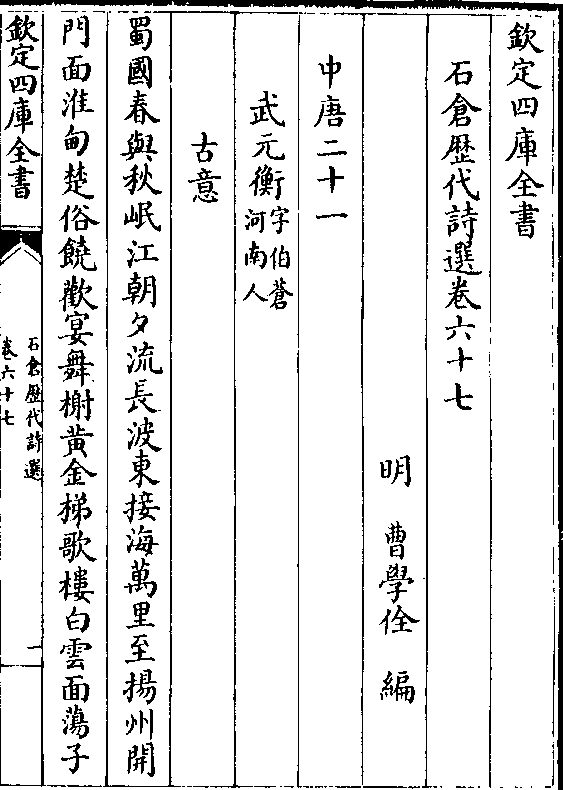 欽定四庫全書
石倉歴代詩選卷六十七
明 曹學佺 編
中唐二十一
武元衡字伯蒼河南人
古意
蜀國春與秋岷江朝夕流長波東接海萬里至揚州開
門面淮甸楚俗饒歡宴舞榭黄金梯歌樓白雲面蕩子
欽定四庫全書
石倉歴代詩選
卷六十七
一